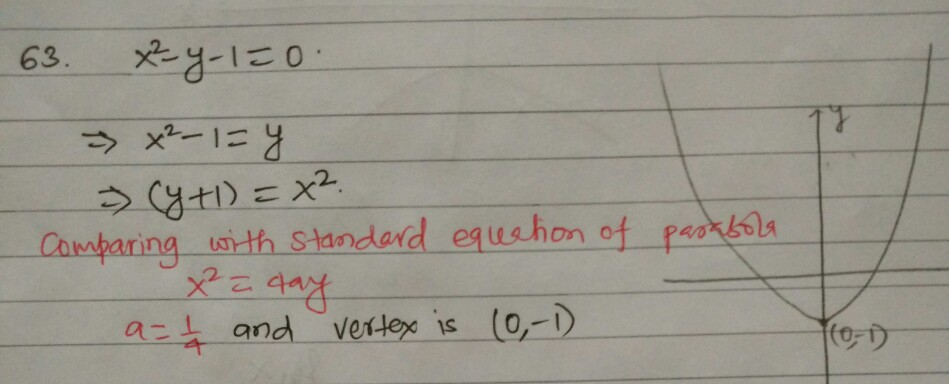 63. x²-y-1=0.
⇒ x²-1=y
⇒ (y+1) = x².
Comparing with standard equation of parabola
x² = 4ay
a = 1/4 and vertex is (0,-1)
y
(0,-1)